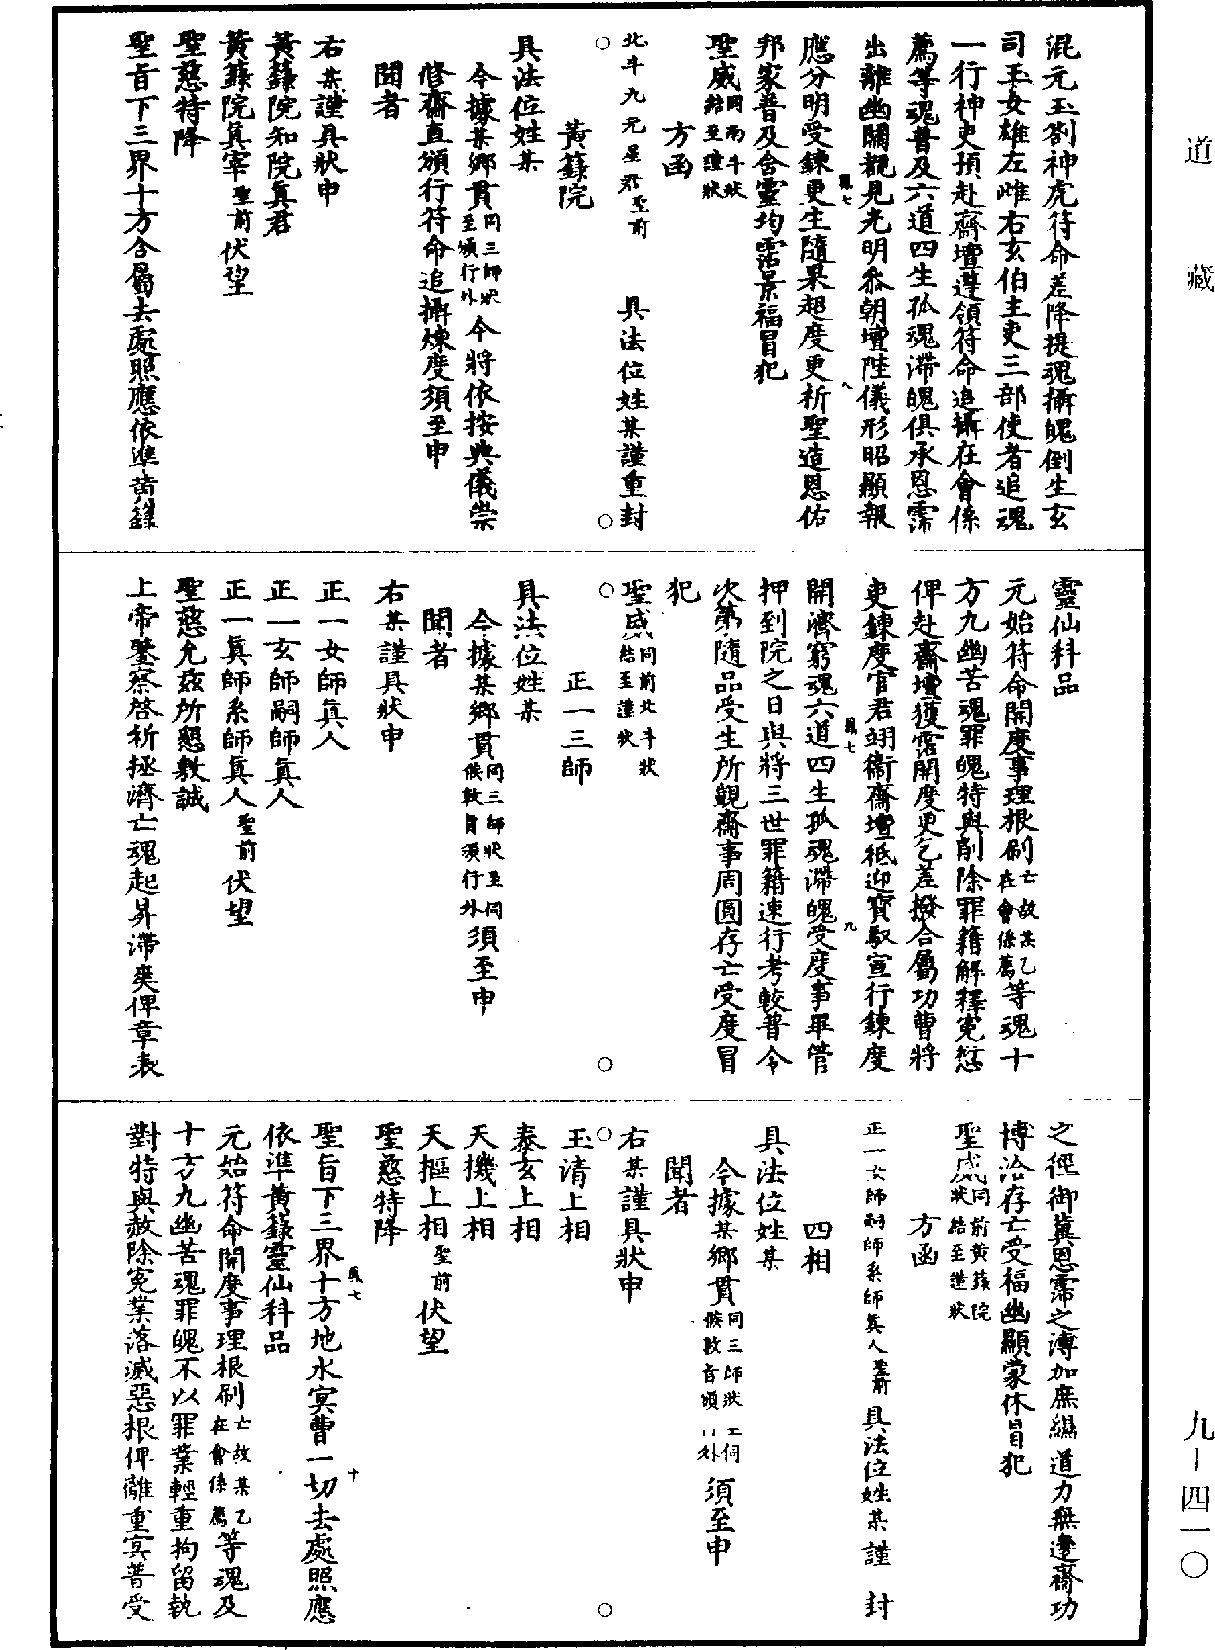 道藏
混元玉劄神虎符命差降提魂攝魄倒生玄
司玉女雄左雌右玄伯主吏三部使者追魂
一行神吏預赴齋壇遵領符命追攝在會係
薦等魂普及六道四生孤魂滯魄俱承恩霈
出離幽關覩見光明叅朝壇陛儀形昭顯報
鳳七
八
應分明受鍊更生隨果超度更祈聖造恩佑
邦家普及含靈均霑景福冒犯
聖威同南斗狀結至謹狀
方函
北斗九元星君聖前 具法位姓某謹重封
黃籙院
具法位姓某
今據某鄉貫同三師狀至頒行外今將依按典儀崇
修齋直頒行符命追攝煉度須至申
聞者
右某謹具狀申
黃籙院知院真君
黃籙院真宰聖前伏望
聖慈特降
聖旨下三界十方合屬去處照應依準黃籙
靈仙科品
元始符命開度事理根刷亡故某乙在會係薦等魂十
方九幽苦魂罪魄特與削除罪籍解釋寃愆
俾赴齋壇獲霑開度更乞差撥合屬功曹將
吏鍊度官君翊衞齋壇祗迎寶馭宣行鍊度
鳳七
九
開濟窮魂六道四生孤魂滯魄受度事畢管
押到院之日與將三世罪籍速行考較普令
次第隨品受生所覬齋事周圓存亡受度冒
犯
聖威同前北斗狀結至謹狀
正一三師
具法位姓某
今據某鄉貫同三師狀至伺候敕旨頒行外須至申
聞者
右某謹具狀申
正一女師真人
正一玄師嗣師真人
正一真師系師真人聖前伏望
聖慈允茲所懇敷誠
上帝鑒察啓祈拯濟亡魂起昇滯爽俾章表
之徑御冀恩霈之溥加庶緣道力無邊齋功
博洽存亡受福幽顯蒙休冒犯
聖威同前黃籙院狀結至謹狀
方函
正一女師嗣師系師真人聖前 具法位姓某謹 封
四相
具法位姓某
今據某鄉貫同三師狀至伺候敕旨頒行外須至申
聞者
右某謹具狀申
玉清上相
泰玄上相
天機上相
天樞上相聖前伏望
聖慈特降
聖旨下三界十方地水冥曹一切去處照應
鳳七
十
依準黃籙靈仙科品
元始符命開度事理根刷亡故某乙在會係薦等魂及
十方九幽苦魂罪魄不以罪業輕重拘留執
對特與赦除寃業落滅惡根俾離重冥普受
九—四一〇